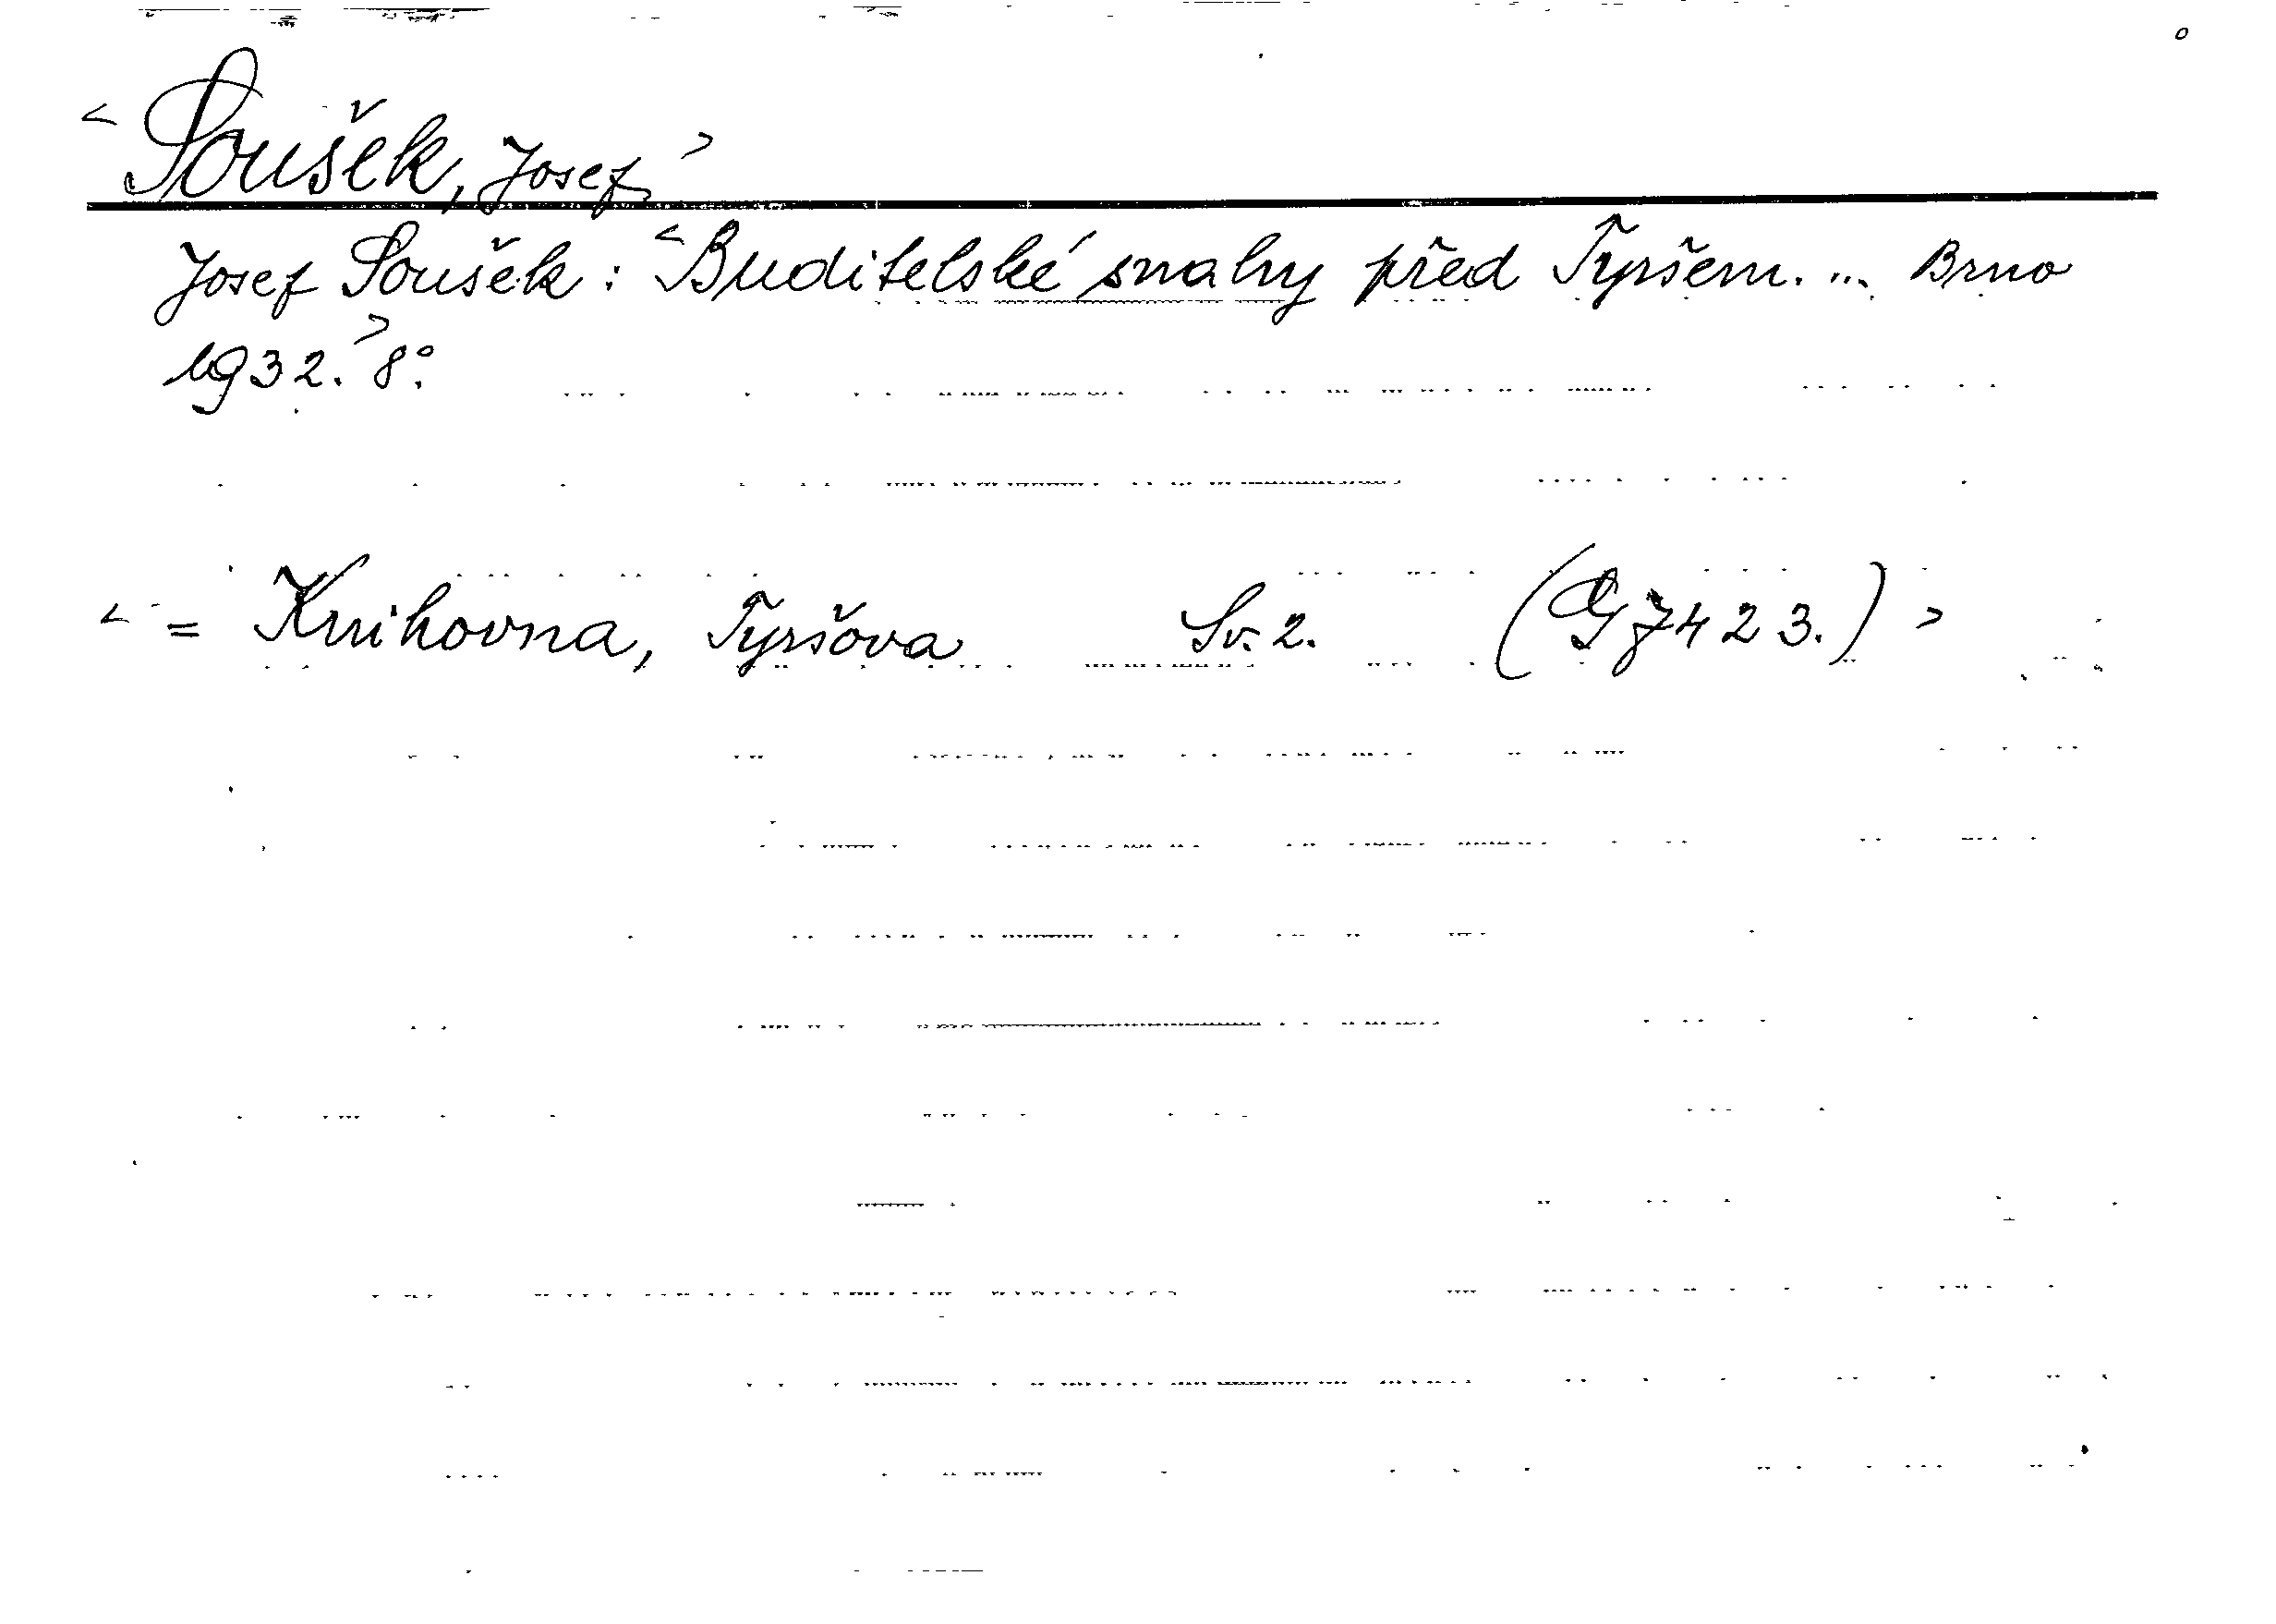 < Soušek, Josef >
Josef Soušek: < Buditelské snahy před Tyršem. ... Brno
1932. > 8°.
< = Knihovna, Tyršova Sv. 2. (G 7423.) >